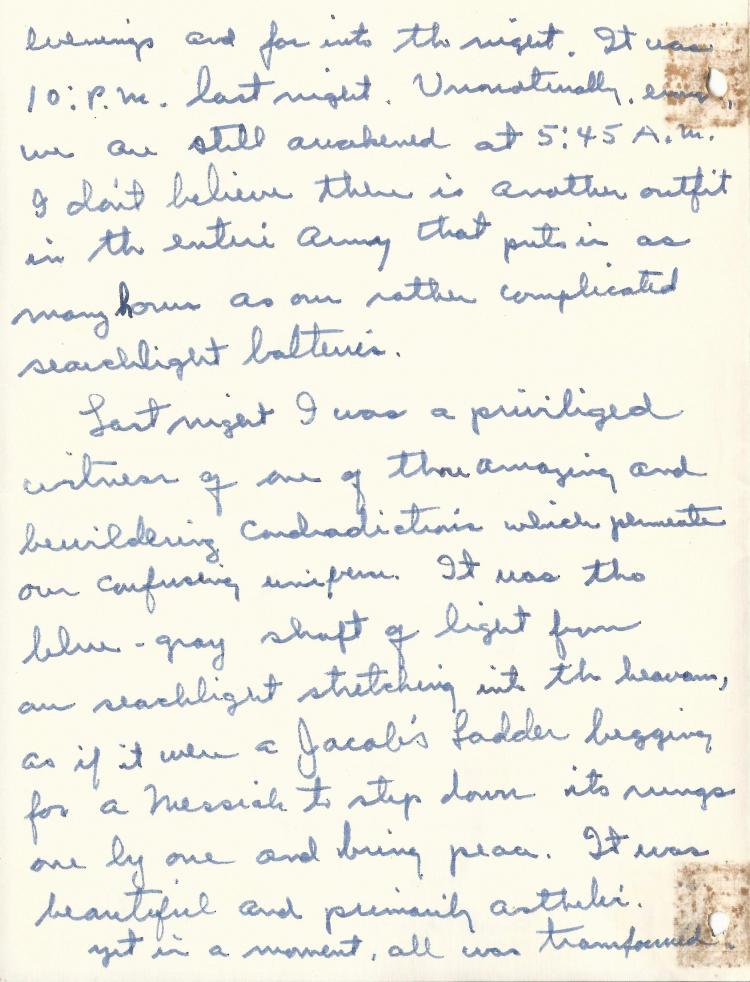 evenings and far into the night. It was
10: P.M. last night. Unnaturally, enuf,
we are still awakened at 5:45 A.M.
I don't believe there is another outfit
in the entire Army that puts in as
many hours as our rather complicated
searchlight batteries.
Last night I was a priviliged
witness of one of those amazing and
bewildering contradictions which permeate
our confusing universe. It was the
blue-gray shaft of light from
our searchlight stretching into the heavens,
as if it were a Jacob's Ladder begging
for a Messiah to step down its rungs
one by one and bring peace. It was
beautiful and primarily asthetic.
yet in a moment, all was transformed.